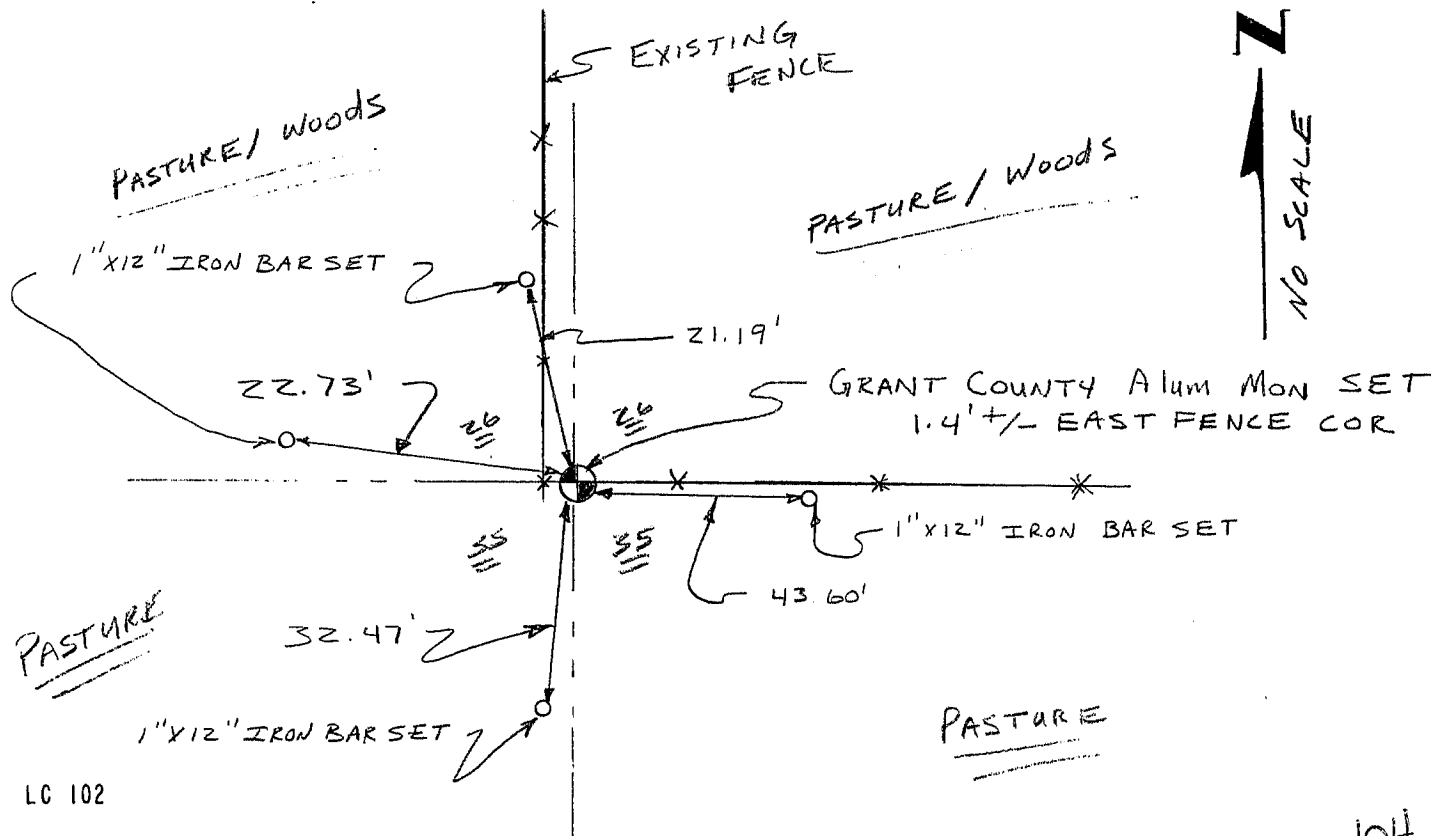 EXISTING
FENCE
PASTURE/ WOODS
PASTURE / WOODS
N
NO SCALE
1"X12" IRON BAR SET
21.19'
22.73'
GRANT COUNTY Alum MON SET
1.4' +/- EAST FENCE COR
26
26
35
35
1"X12" IRON BAR SET
43.60'
PASTURE
32.47'
1"X12" IRON BAR SET
PASTURE
LC 102